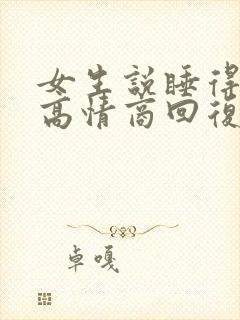 女生説睡得
高情商回復
卓嘎